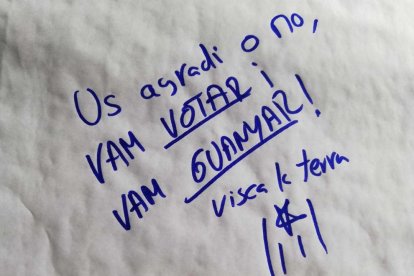 Us agradi o no,
VAM VOTAR i
VAM GUANYAR!
visca la terra